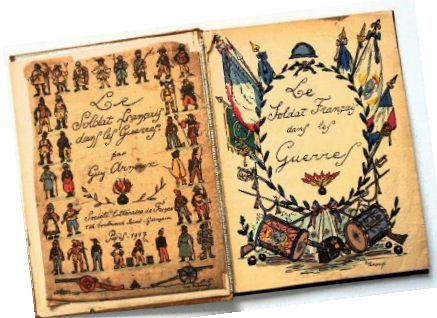 Le
Soldat Français
dans les Guerres
par
Guy Arnoux
Société Littéraire de France
Paris. 1917
Le
Soldat Français
dans les
Guerres